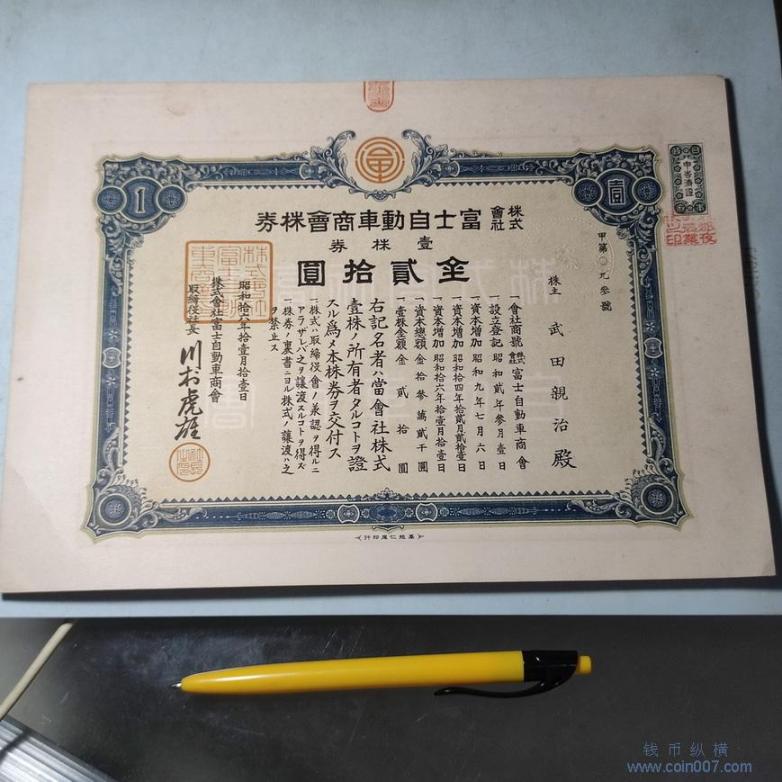 壹
1
株式會社富士自動車商會株券
壹株券
金貳拾圓
甲第〇九參號
株主 武田親治殿
一會社商號 株式會社富士自動車商會
一設立登記 昭和貳年參月壹日
一資本增加 昭和九年七月六日
一資本增加 昭和拾四年拾貳月貳拾壹日
一資本增加 昭和拾六年拾壹月拾壹日
一資本總額 金拾參萬貳千圓
一壹株金額 金貳拾圓
右記名者ハ當會社株式
壹株ノ所有者タルコトヲ證
スル爲メ本株券ヲ交付ス
一株式ハ取締役會ノ承認ヲ得ルニ
アラザレバ之ヲ讓渡スルコトヲ得ズ
一株券ノ裏書ニヨル株式ノ讓渡ハ之
ヲ禁止ス
昭和拾六年拾壹月拾壹日
株式會社富士自動車商會
取締役社長
川村虎雄
钱币纵横
www.coin007.com